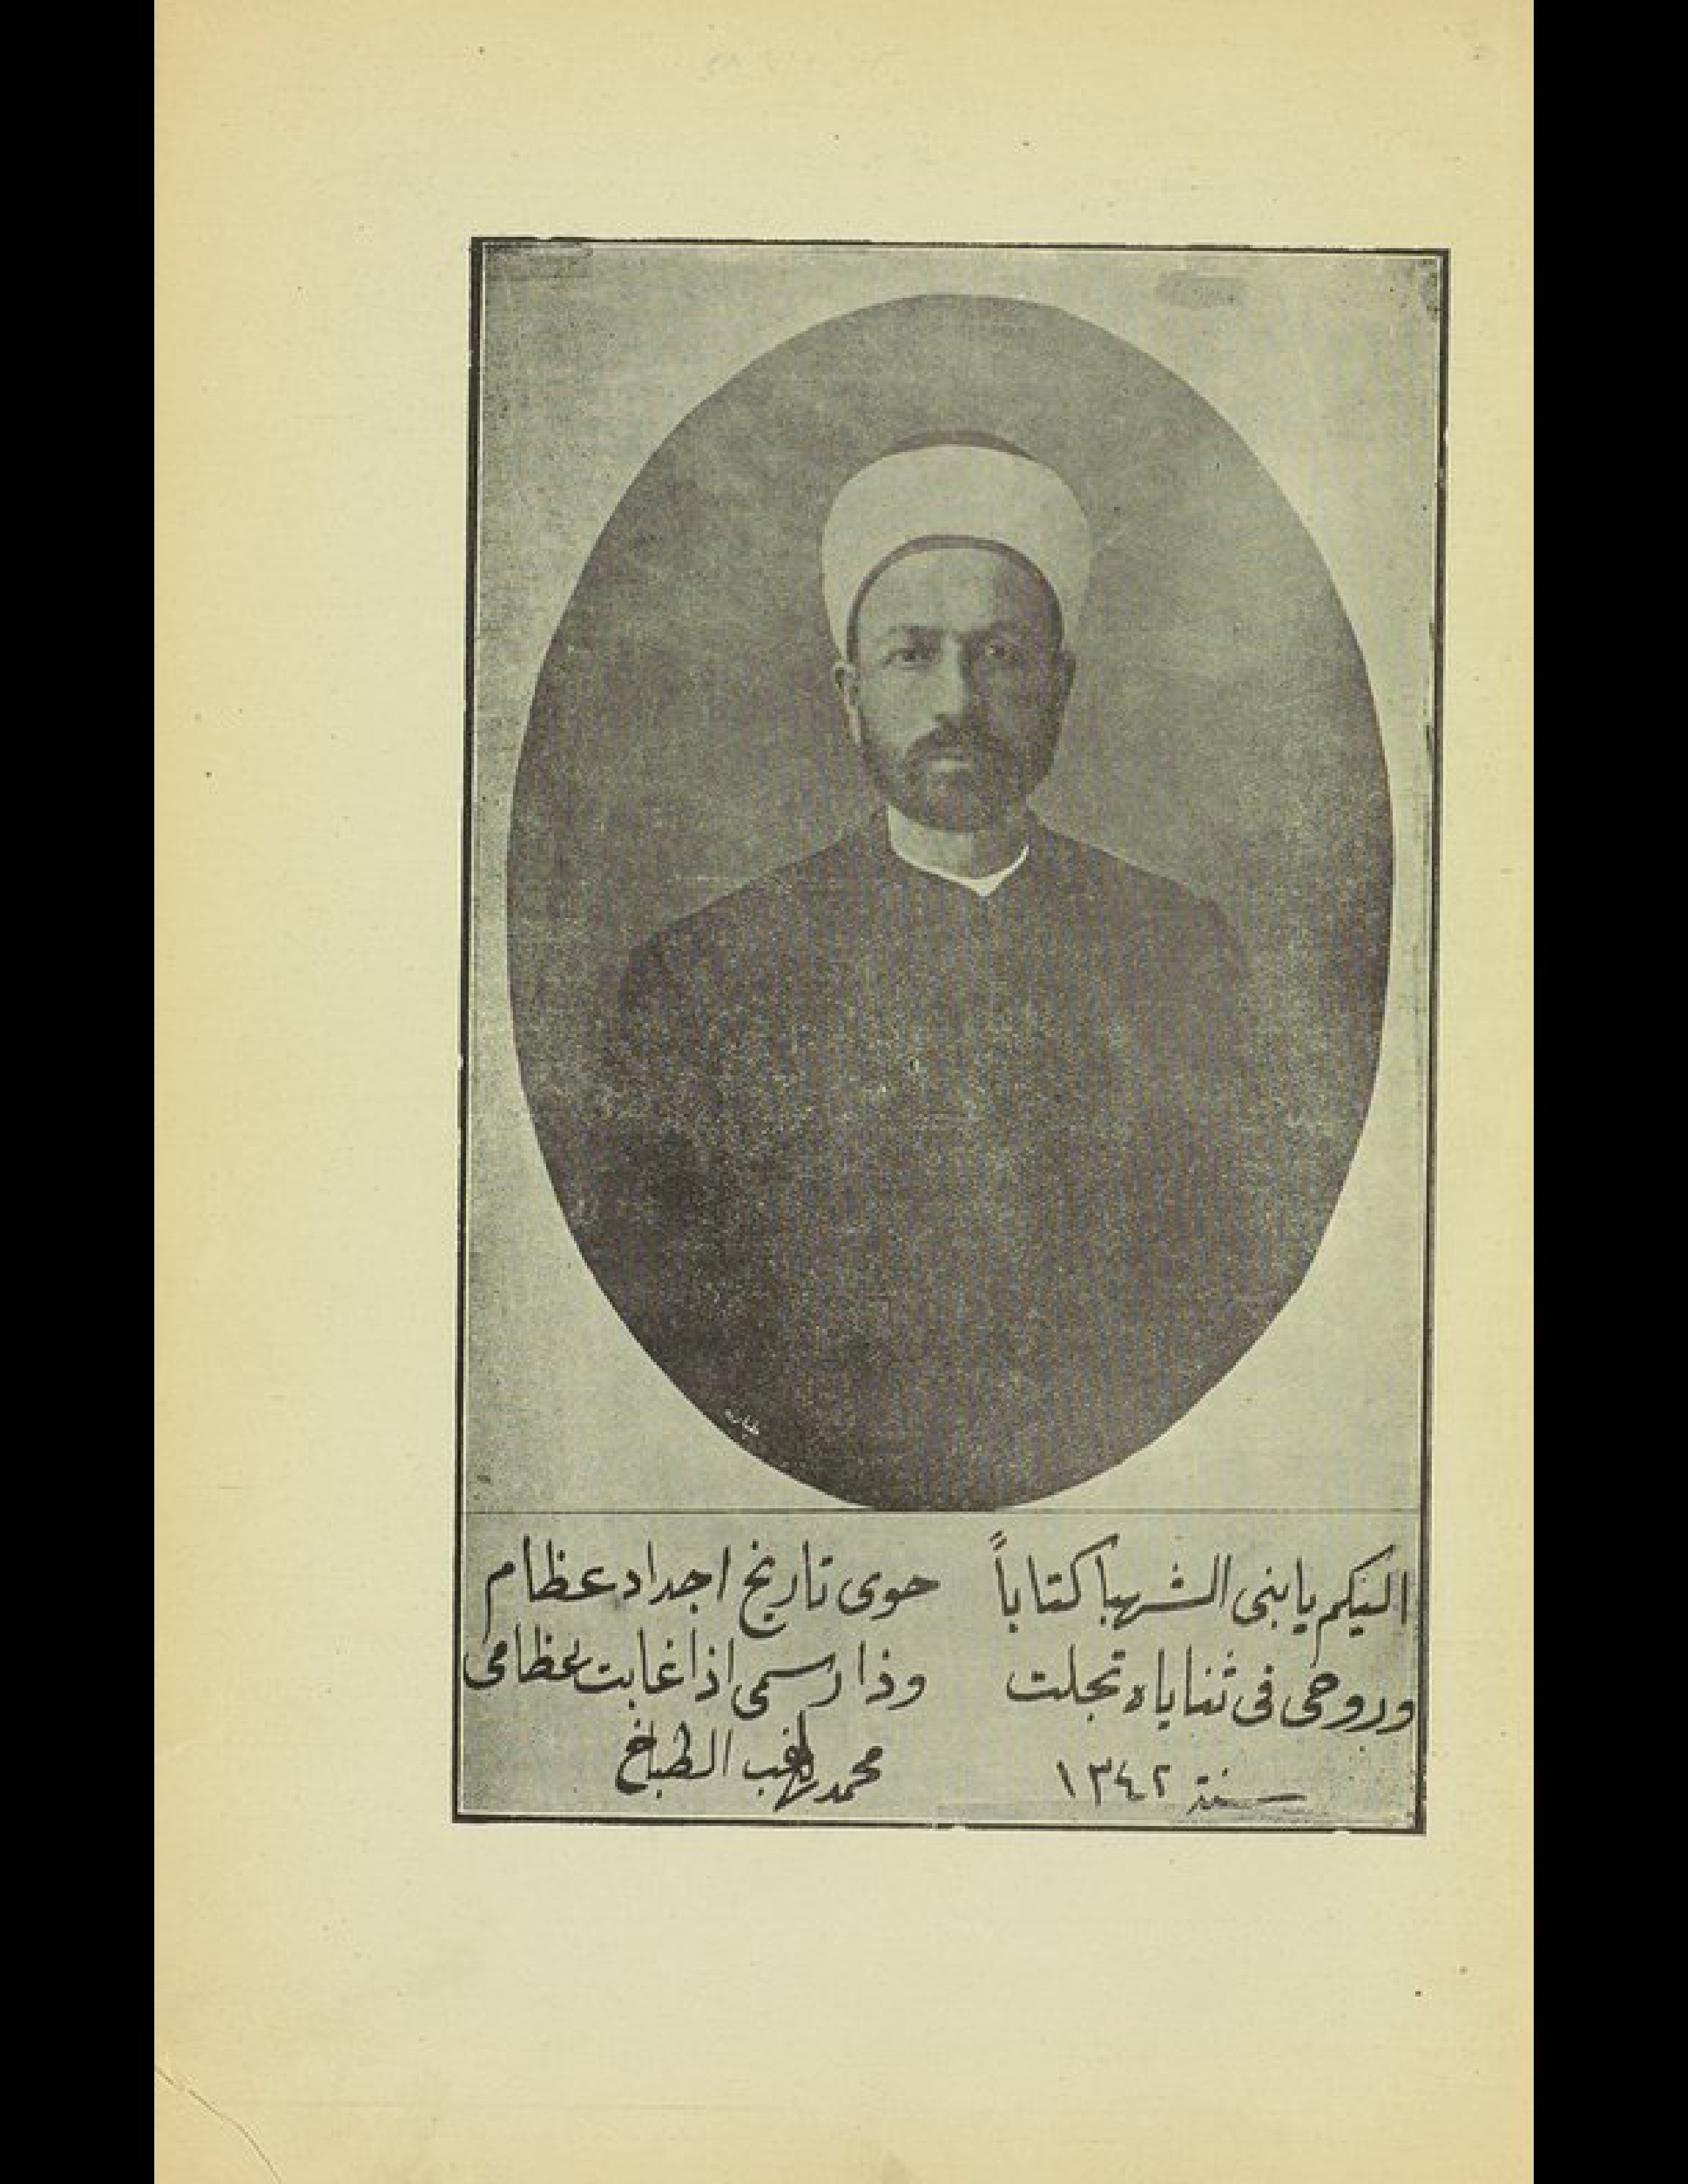 اليكم يا بنى الشهبا كتاباً حوى تاريخ اجداد عظام
وروحى فى ثناياه تجلت وذا رسمى اذا غابت عظامى
سنة ١٣٤٢ محمد راغب الطباخ